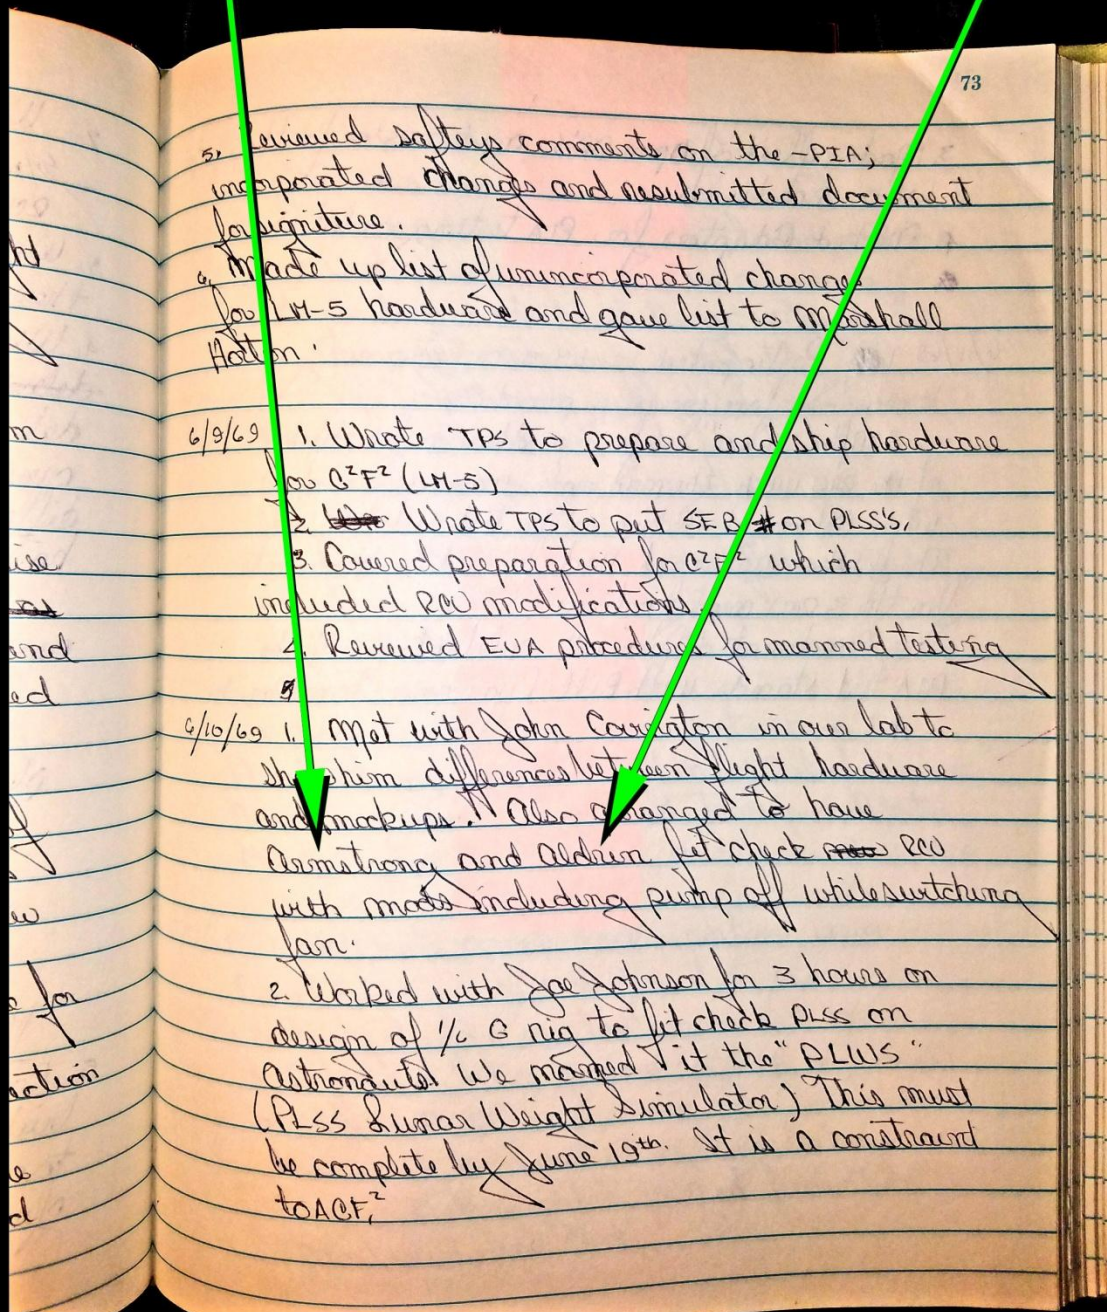 73
5. Reviewed safteys comments on the -PIA;
incorporated changes and resubmitted document
for signiture.
6. Made up list of unincorporated changes
for LM-5 hardware and gave list to Marshall
Hatton.
6/9/69 1. Wrote TPS to prepare and ship hardware
for C²F² (LM-5)
2. Wrote TPS to put SEB # on PLSS'S.
3. Covered preparation for C²F² which
included RCU modifications.
4. Reviewed EVA procedures for manned testing
5
6/10/69 1. Met with John Covington in our lab to
show him differences between flight hardware
and mockups. Also arranged to have
Armstrong and Aldrin fit check RCU
with mods including pump off while switching
fan.
2. Worked with Joe Johnson for 3 hours on
design of 1/6 G rig to fit check PLSS on
astronauts. We named it the "PLWS"
(PLSS Lunar Weight Simulator) This must
be complete by June 19th. It is a constraint
to
ht
m
ise
and
ed
of
w
for
ection
e
d